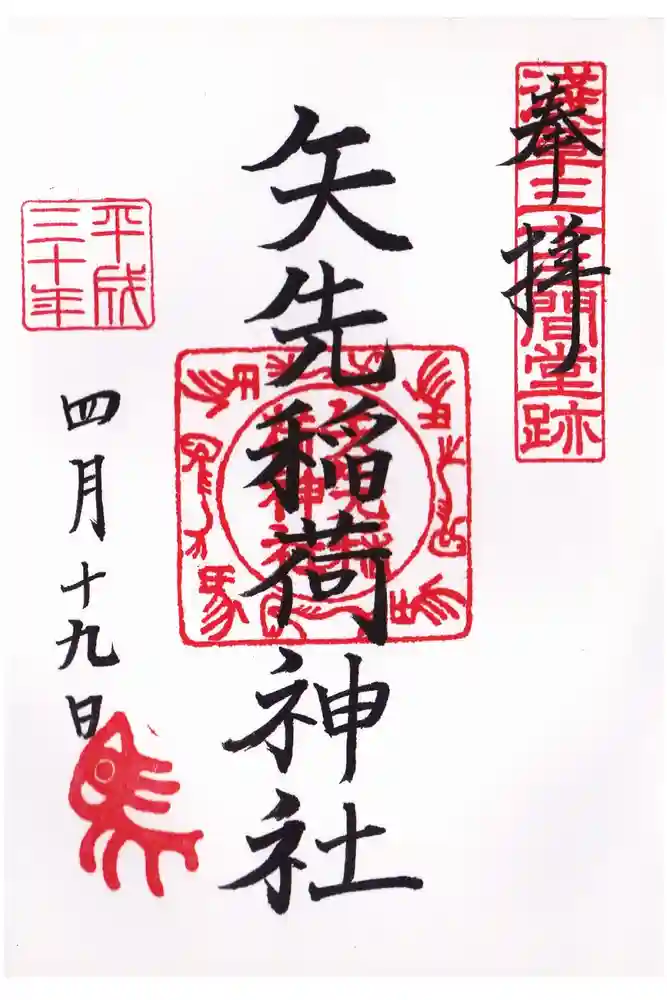 奉拝
淺草三十三間堂跡
矢先稲荷神社
平成
三十年
四月十九日
馬